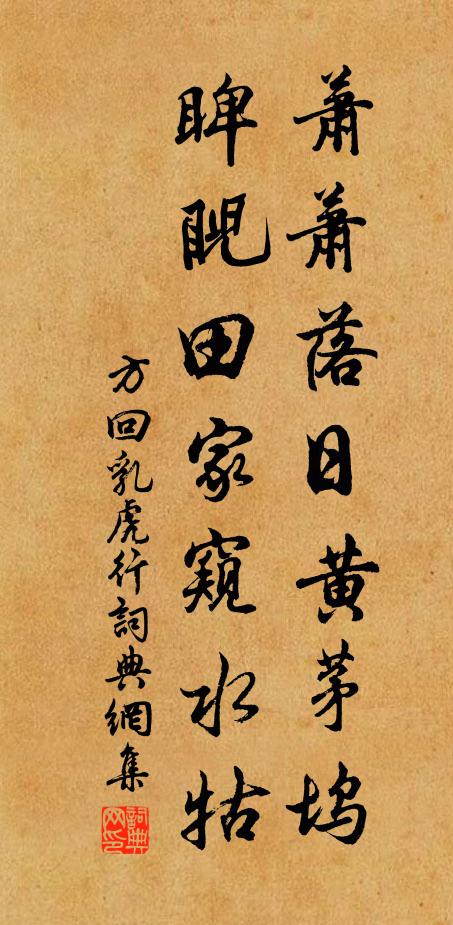 蕭蕭落日黄茅塢
睥睨田家窺水牯
方回乳虎行詞典網集
詞典网印